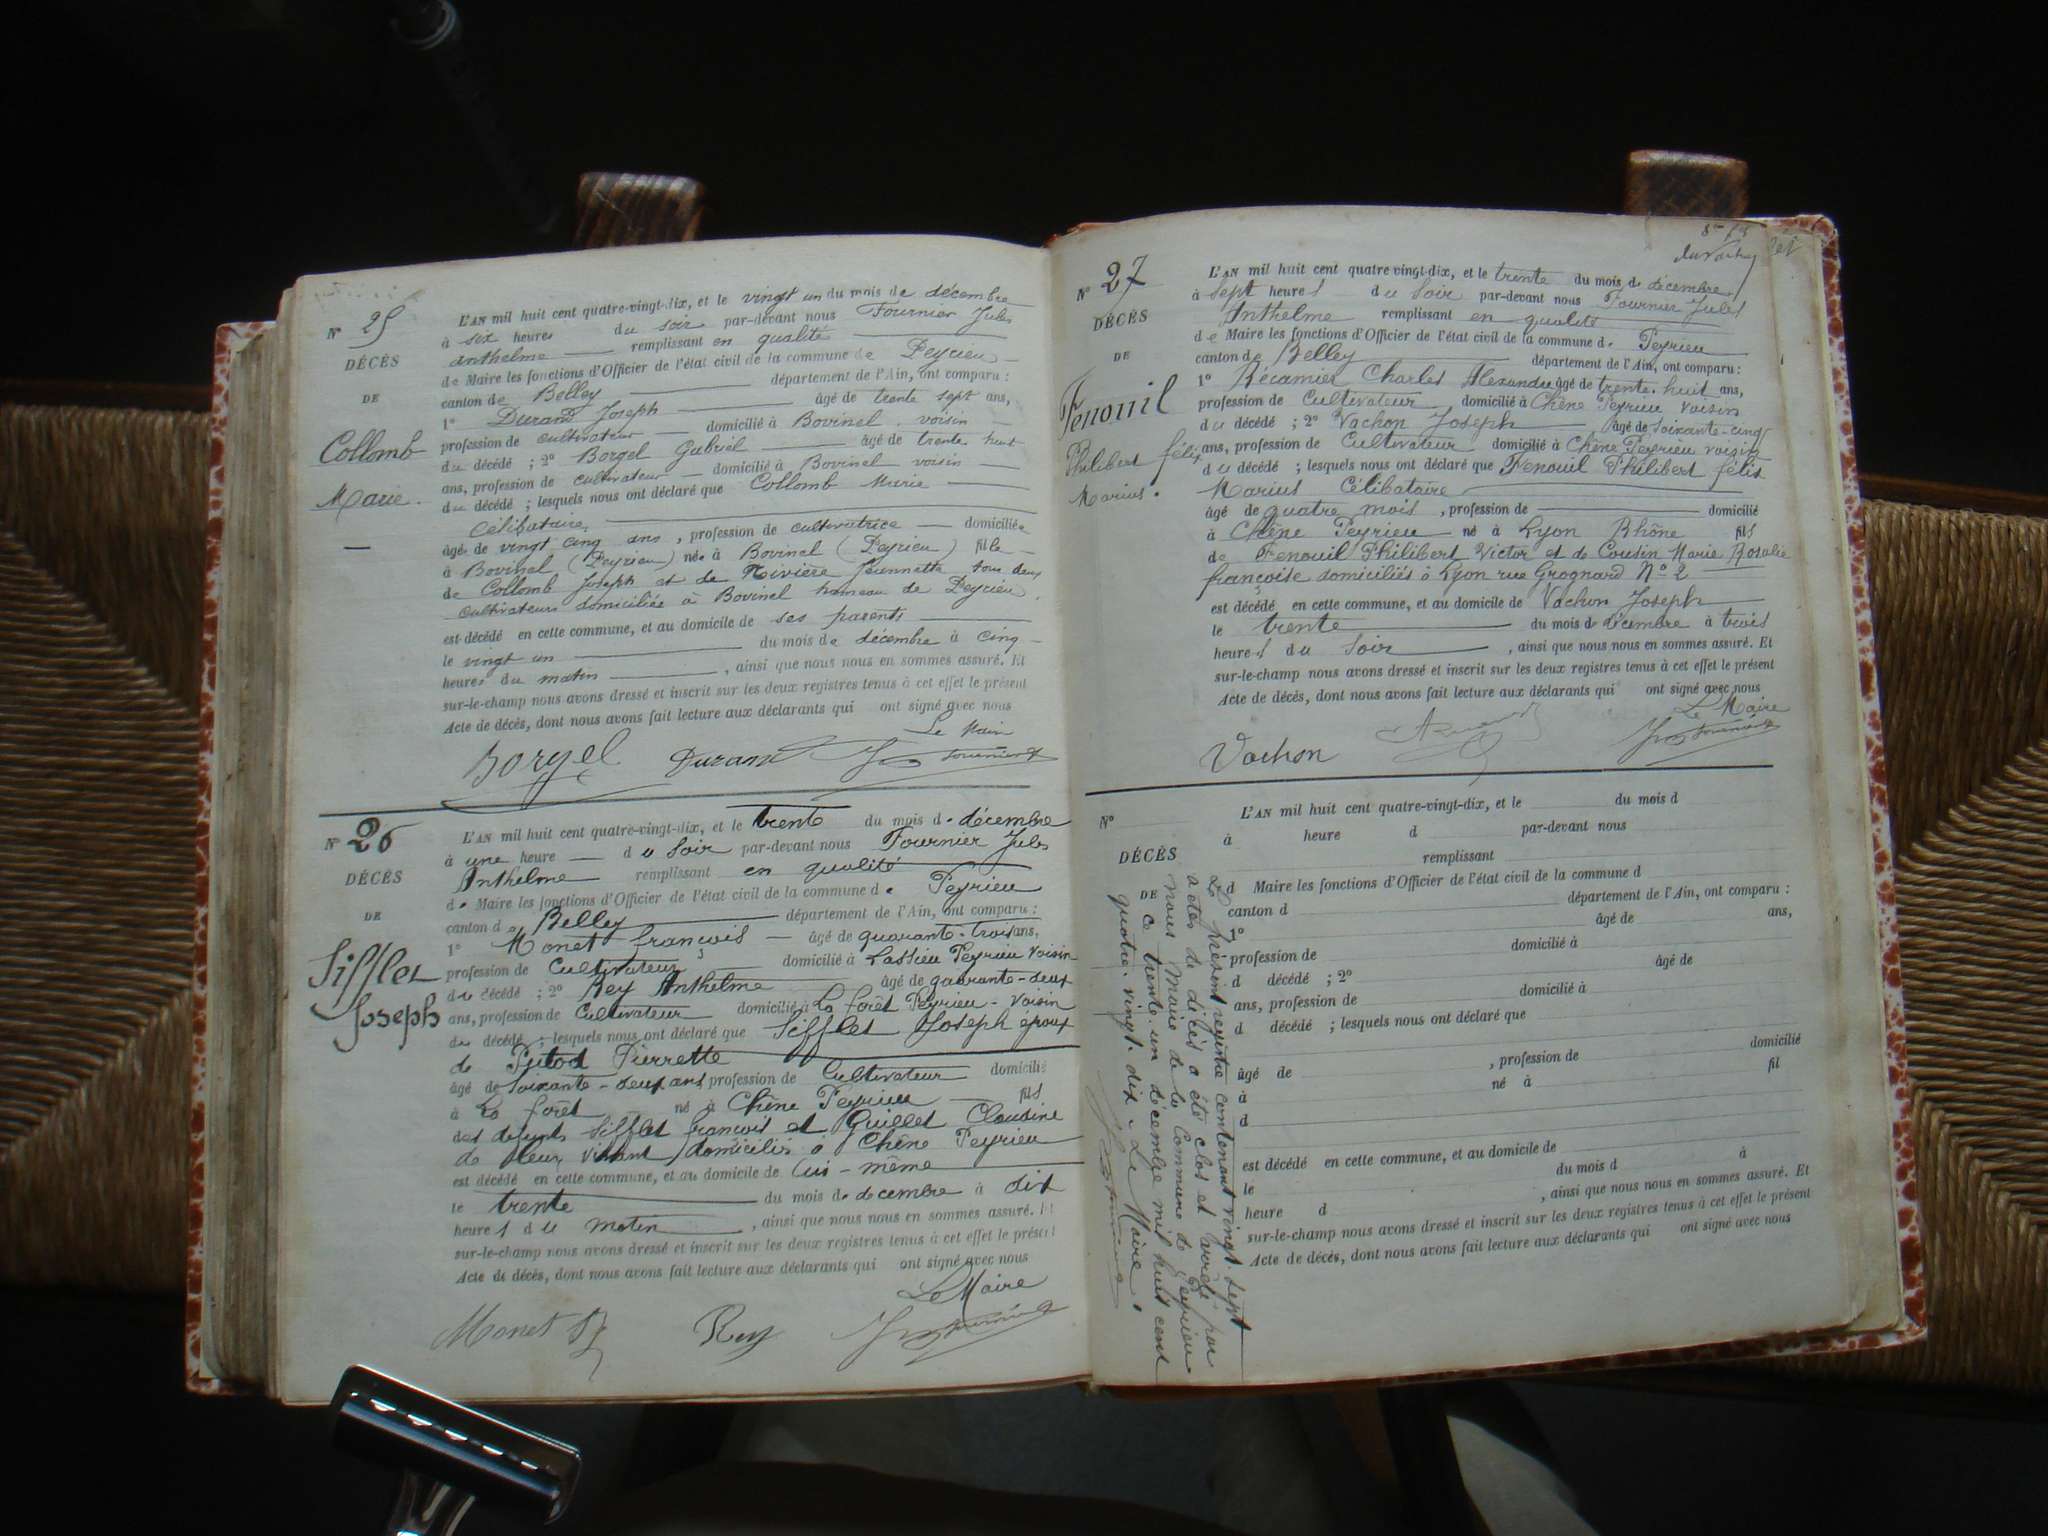 N° 25
DÉCÈS
DE
Collomb
Marie.
L'AN mil huit cent quatre-vingt-dix, et le vingt un du mois de décembre
à six heures du soir par-devant nous Fournier Jules
anthelme remplissant en qualité
de Maire les fonctions d'Officier de l'état civil de la commune de Peyrieu
canton de Belley département de l'Ain, ont comparu :
1° Durand Joseph âgé de trente sept ans,
profession de cultivateur domicilié à Bovinel. voisin
du décédé ; 2° Borgel Gabriel âgé de trente huit
ans, profession de cultivateur domicilié à Bovinel voisin
du décédé ; lesquels nous ont déclaré que Collomb Marie
Célibataire,
âgée de vingt cinq ans, profession de cultivatrice domiciliée
à Bovinel (Peyrieu) née à Bovinel (Peyrieu) fille
de Collomb Joseph et de Rivière Jeannette tous deux
cultivateurs domiciliés à Bovinel hameau de Peyrieu.
est décédé en cette commune, et au domicile de ses parents
le vingt un du mois de décembre à cinq
heures du matin, ainsi que nous nous en sommes assuré. Et
sur-le-champ nous avons dressé et inscrit sur les deux registres tenus à cet effet le présent
Acte de décès, dont nous avons fait lecture aux déclarants qui ont signé avec nous
Le Maire
Borgel Durand Fournier
N° 26
DÉCÈS
DE
Sifflet
Joseph
L'AN mil huit cent quatre-vingt-dix, et le trente du mois de décembre
à une heure du soir par-devant nous Fournier Jules
Anthelme remplissant en qualité
de Maire les fonctions d'Officier de l'état civil de la commune de Peyrieu
canton de Belley département de l'Ain, ont comparu :
1° Monet françois âgé de quarante-trois ans,
profession de Cultivateur domicilié à Lassieu Peyrieu Voisin
du décédé ; 2° Rey Anthelme âgé de quarante-deux
ans, profession de Cultivateur domicilié à La forêt Peyrieu - Voisin
du décédé ; lesquels nous ont déclaré que Sifflet Joseph époux
de Pierrette
âgé de soixante-deux ans profession de Cultivateur domicilié
à La forêt né à Chêne Peyrieu fils
des défunts Sifflet françois et Guillet Claudine
de leur vivant domiciliés à Chêne Peyrieu
est décédé en cette commune, et au domicile de lui-même
le trente du mois de décembre à dix
heures du matin, ainsi que nous nous en sommes assuré. Et
sur-le-champ nous avons dressé et inscrit sur les deux registres tenus à cet effet le présent
Acte de décès, dont nous avons fait lecture aux déclarants qui ont signé avec nous
Le Maire
Monet Rey Fournier
N° 27
DÉCÈS
DE
Fenouil
Philibert félix
Marius.
L'AN mil huit cent quatre-vingt-dix, et le trente du mois de décembre
à sept heures du soir par-devant nous Fournier Jules
Anthelme remplissant en qualité
de Maire les fonctions d'Officier de l'état civil de la commune de Peyrieu
canton de Belley département de l'Ain, ont comparu :
1° Récamier Charles Alexandre âgé de trente-huit ans,
profession de Cultivateur domicilié à Chêne Peyrieu voisin
du décédé ; 2° Vachon Joseph âgé de soixante-cinq
ans, profession de Cultivateur domicilié à Chêne Peyrieu voisin
du décédé ; lesquels nous ont déclaré que Fenouil Philibert félix
Marius Célibataire
âgé de quatre mois, profession de domicilié
à Chêne Peyrieu né à Lyon Rhône fils
de Fenouil Philibert Victor et de Cousin Marie Rosalie
françoise domiciliés à Lyon rue Grognard N° 2
est décédé en cette commune, et au domicile de Vachon Joseph
le trente du mois de décembre à trois
heures du soir, ainsi que nous nous en sommes assuré. Et
sur-le-champ nous avons dressé et inscrit sur les deux registres tenus à cet effet le présent
Acte de décès, dont nous avons fait lecture aux déclarants qui ont signé avec nous
Le Maire
Vachon Fournier
N°
DÉCÈS
DE
L'AN mil huit cent quatre-vingt-dix, et le du mois d
à heure d par-devant nous
remplissant
d Maire les fonctions d'Officier de l'état civil de la commune d
canton d département de l'Ain, ont comparu :
1° âgé de ans,
profession de domicilié à
d décédé ; 2° âgé de
ans, profession de domicilié à
d décédé ; lesquels nous ont déclaré que
âgé de , profession de domicilié
à né à fil
d
est décédé en cette commune, et au domicile de
le du mois d à
heure d , ainsi que nous nous en sommes assuré. Et
sur-le-champ nous avons dressé et inscrit sur les deux registres tenus à cet effet le présent
Acte de décès, dont nous avons fait lecture aux déclarants qui ont signé avec nous
Le présent registre contenant vingt-sept
actes de décès a été clos et arrêté par
nous Maire de la Commune de Peyrieu
ce trente-un décembre mil huit cent
quatre-vingt-dix. Le Maire.
Fournier